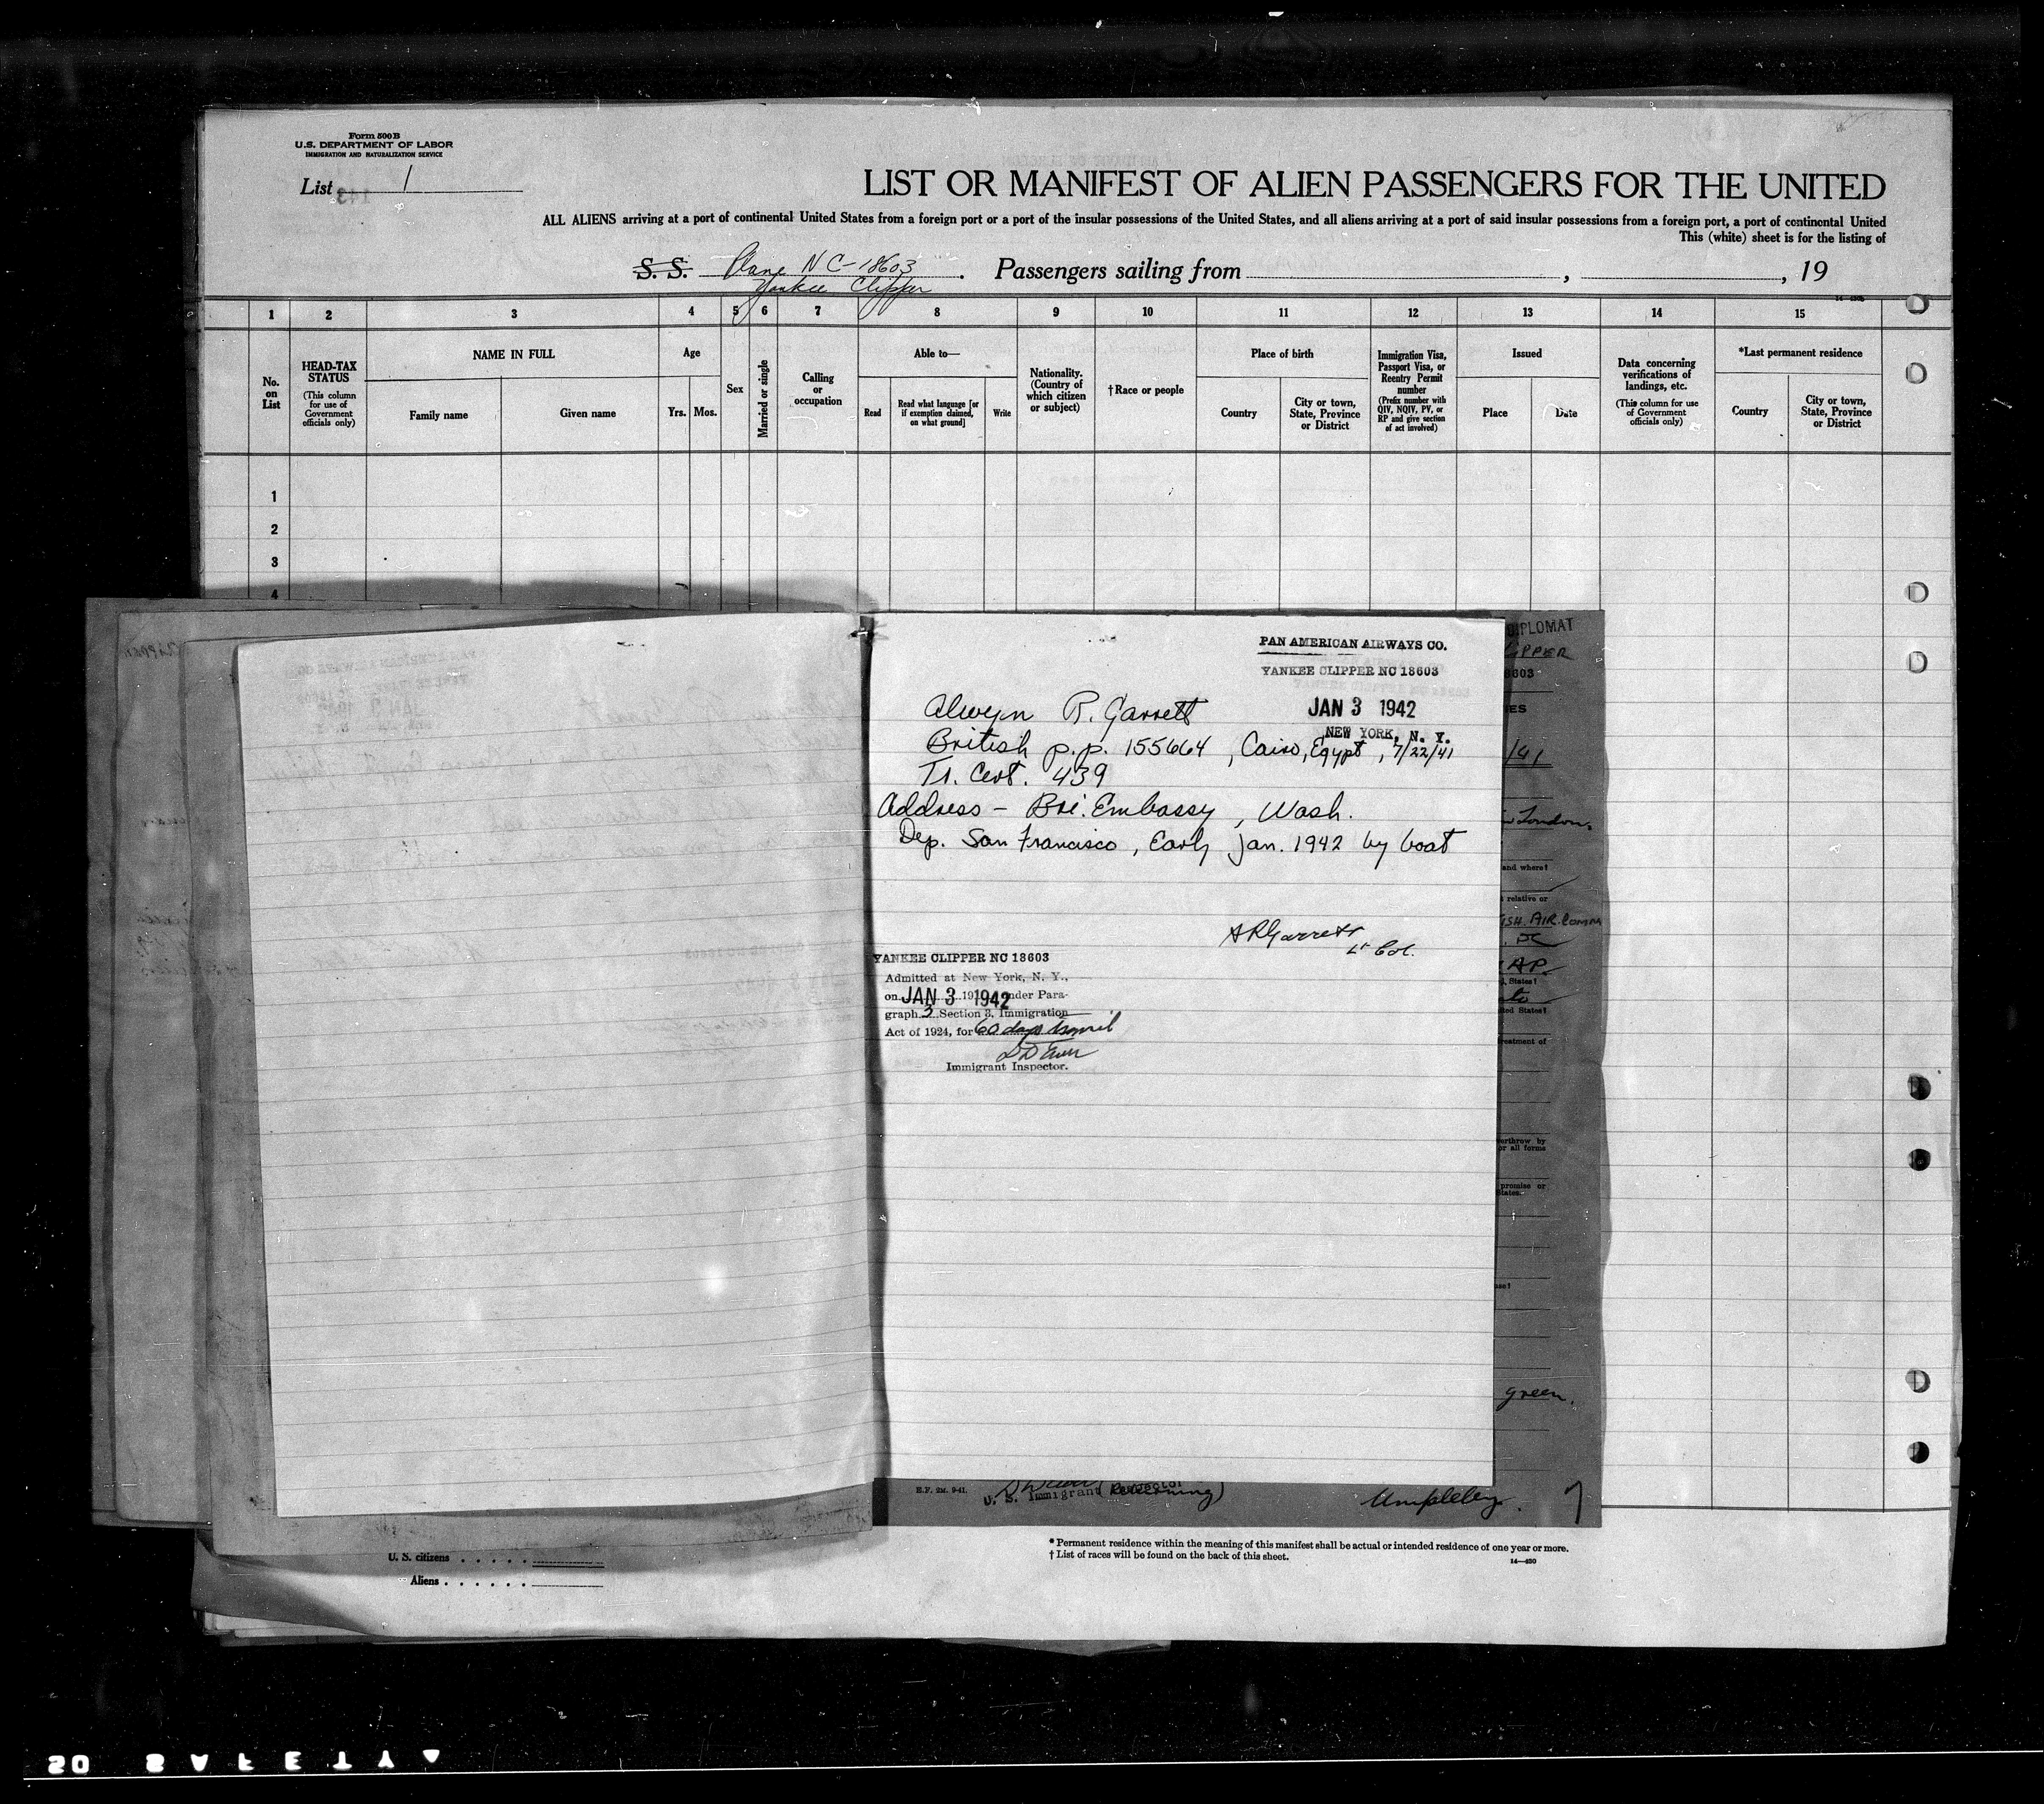 Form 500 B
U.S. DEPARTMENT OF LABOR
IMMIGRATION AND NATURALIZATION SERVICE
List 1
LIST OR MANIFEST OF ALIEN PASSENGERS FOR THE UNITED
ALL ALIENS arriving at a port of continental United States from a foreign port or a port of the insular possessions of the United States, and all aliens arriving at a port of said insular possessions from a foreign port, a port of continental United
This (white) sheet is for the listing of
S. S. Plane NC-18603 . Passengers sailing from , , 19
Yankee Clipper
1 2 3 4 5 6 7 8 9 10 11 12 13 14 15
No. on List
HEAD-TAX STATUS
(This column for use of Government officials only)
NAME IN FULL
Family name
Given name
Age
Yrs. Mos.
Sex
Married or single
Calling or occupation
Able to—
Read
Read what language [or if exemption claimed, on what ground]
Write
Nationality. (Country of which citizen or subject)
†Race or people
Place of birth
Country
City or town, State, Province or District
Immigration Visa, Passport Visa, or Reentry Permit number
(Prefix number with QIV, NQIV, PV, or RP and give section of act involved)
Issued
Place
Date
Data concerning verifications of landings, etc.
(This column for use of Government officials only)
*Last permanent residence
Country
City or town, State, Province or District
1
2
3
4
PAN AMERICAN AIRWAYS CO.
YANKEE CLIPPER NC 18603
JAN 3 1942
NEW YORK, N. Y.
Alwyn R. Garrett
British p.p. 155664, Cairo, Egypt, 7/22/41
Tr. Cert. 439
Address - Bri. Embassy, Wash.
Dep. San Francisco, Early Jan. 1942 by boat
ARGarrett
Lt Col.
YANKEE CLIPPER NC 18603
Admitted at New York, N. Y.,
on JAN 3 1942 under Para-
graph 3 Section 3, Immigration
Act of 1924, for 60 days
Immigrant Inspector.
DIPLOMAT
CLIPPER
8603
ES
/41
London,
and where?
relative or
ISH. AIR. Comm
DC
States?
ited States?
reatment of
verthrow by
or all forms
promise or
States.
green.
E.F. 2M. 9-41.
U. S. Immigrant Inspector
Umpleby. 7
U. S. citizens . . . . .
Aliens . . . . . .
* Permanent residence within the meaning of this manifest shall be actual or intended residence of one year or more.
† List of races will be found on the back of this sheet.
14—430
SAFETY